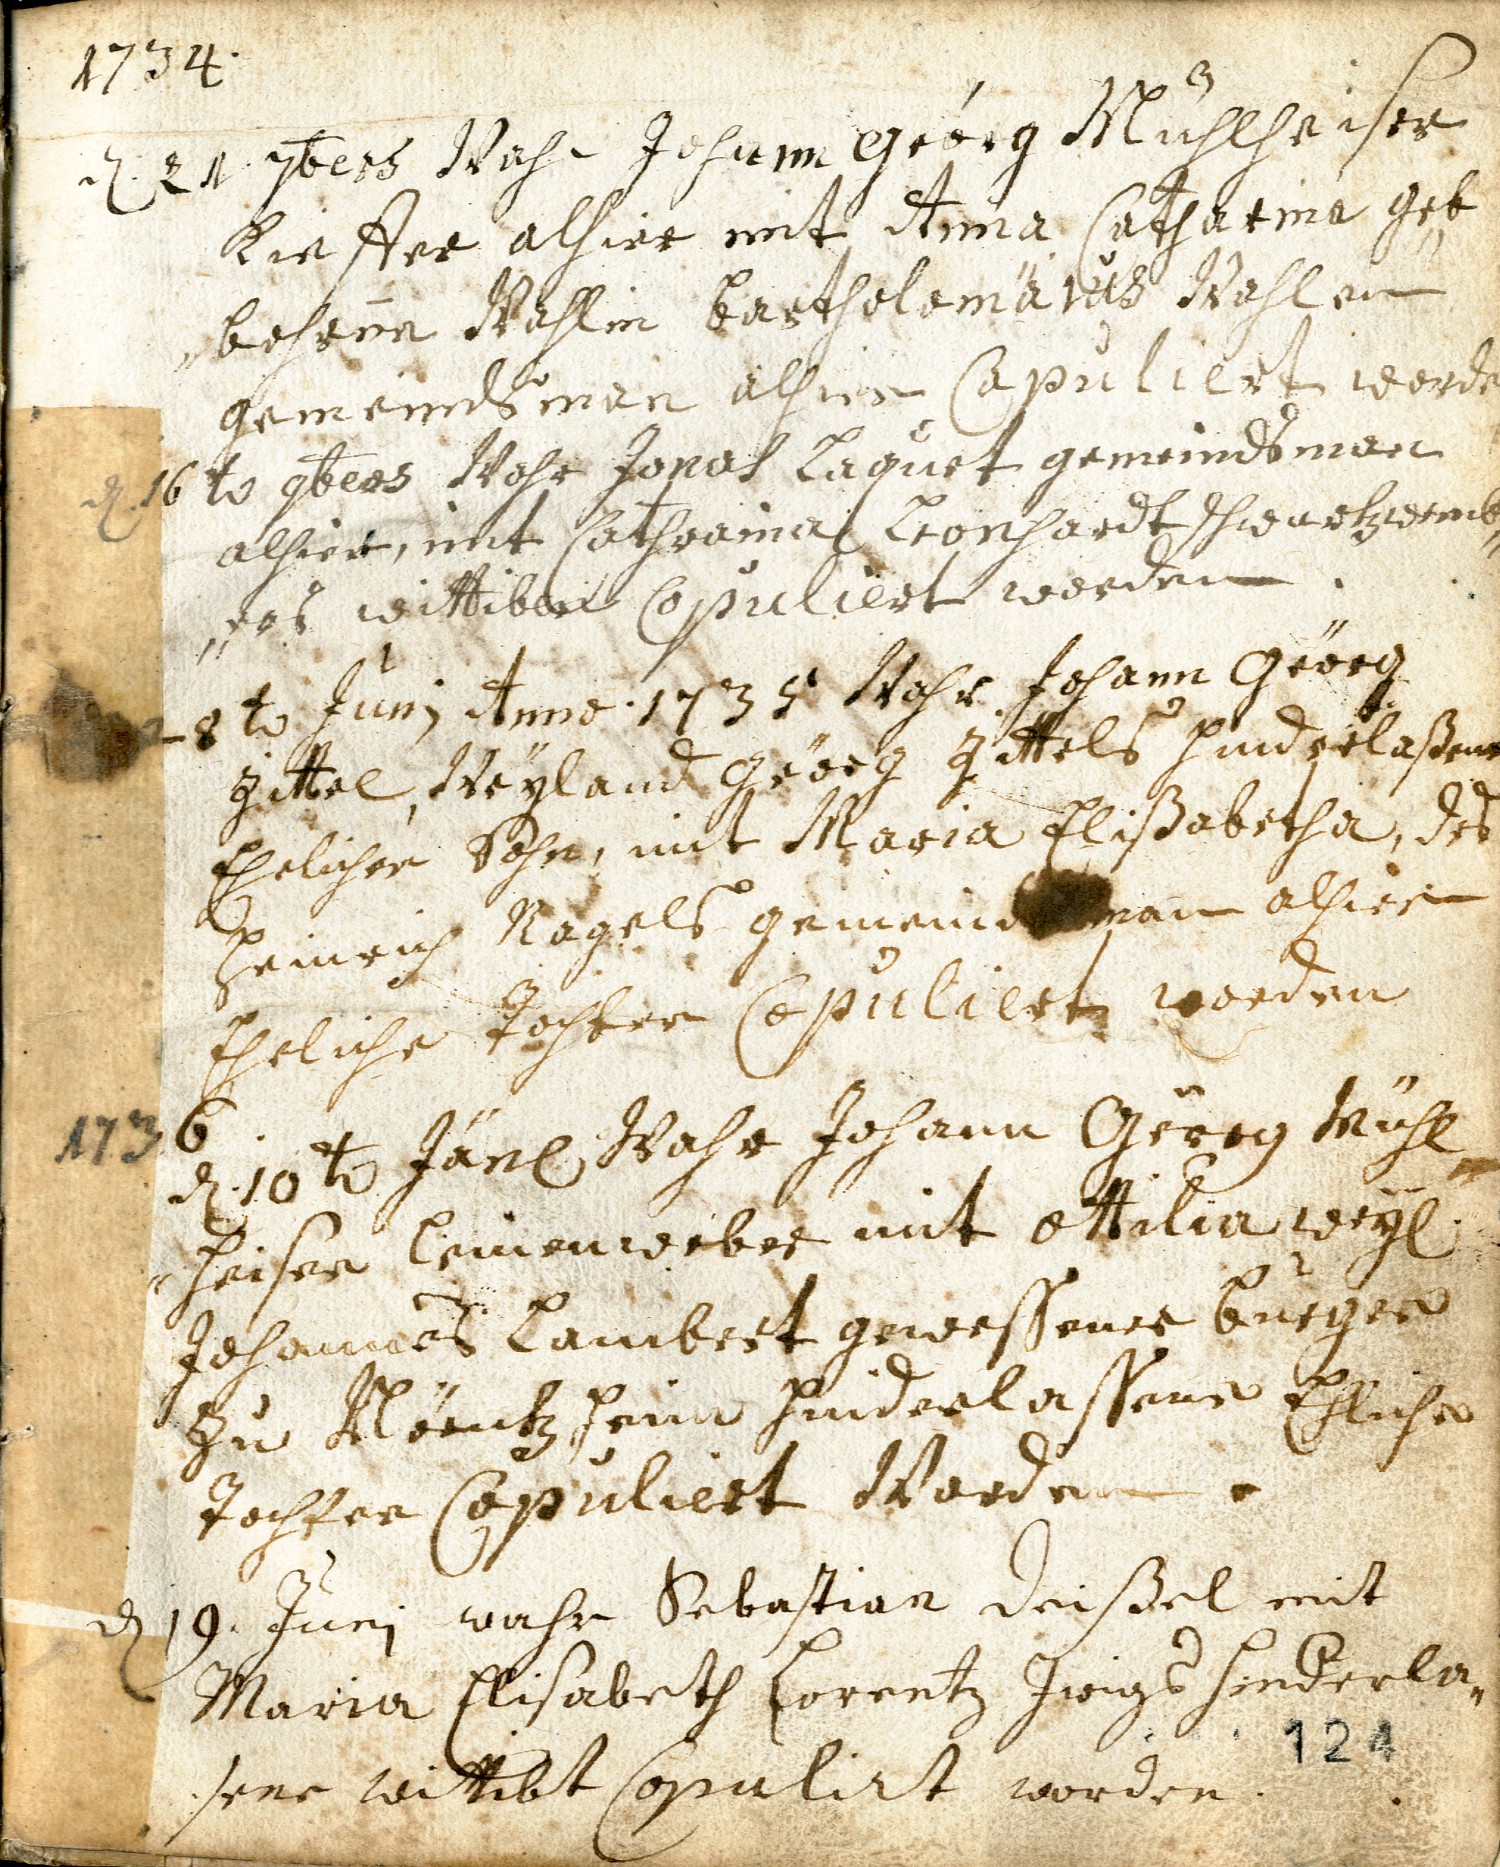 1734.
d. 21 7bers Wahr Johann Geörg Mühlheiser
Kieffer alhier mit Anna Catharina geb
bohrene Wahlin Bartholemäius Wahlen
gemeindsman alhier Copuliert worde
d. 16 to 9bers Wahr Jonas Laquet gemeindsman
alhier, mit Cathraina Leonhardt
ers wittiben Copuliert worden.
8 to Junj Anno 1735 Wahr Johann Geörg
Zittel, Weyland Geörg Zittels hinderlaßener
Ehelicher Sohn, mit Maria Elißabetha, des
Heinrich Nagels gemeindsman alhier
Eheliche Tochter Copuliert worden
1736
d. 10 to Jänl Wahr Johann Geörg Mühl
heiser leinenweber mit ottilia weyl.
Johannes Lambert gewessener burger
zu hinderlassene Ehliche
Tochter Copuliert Worden.
d 19. Junj wahr Sebastian Deißel mit
Maria Elisabeth Lorentz hinderla„
sene wittibt Copulirt worden.
124